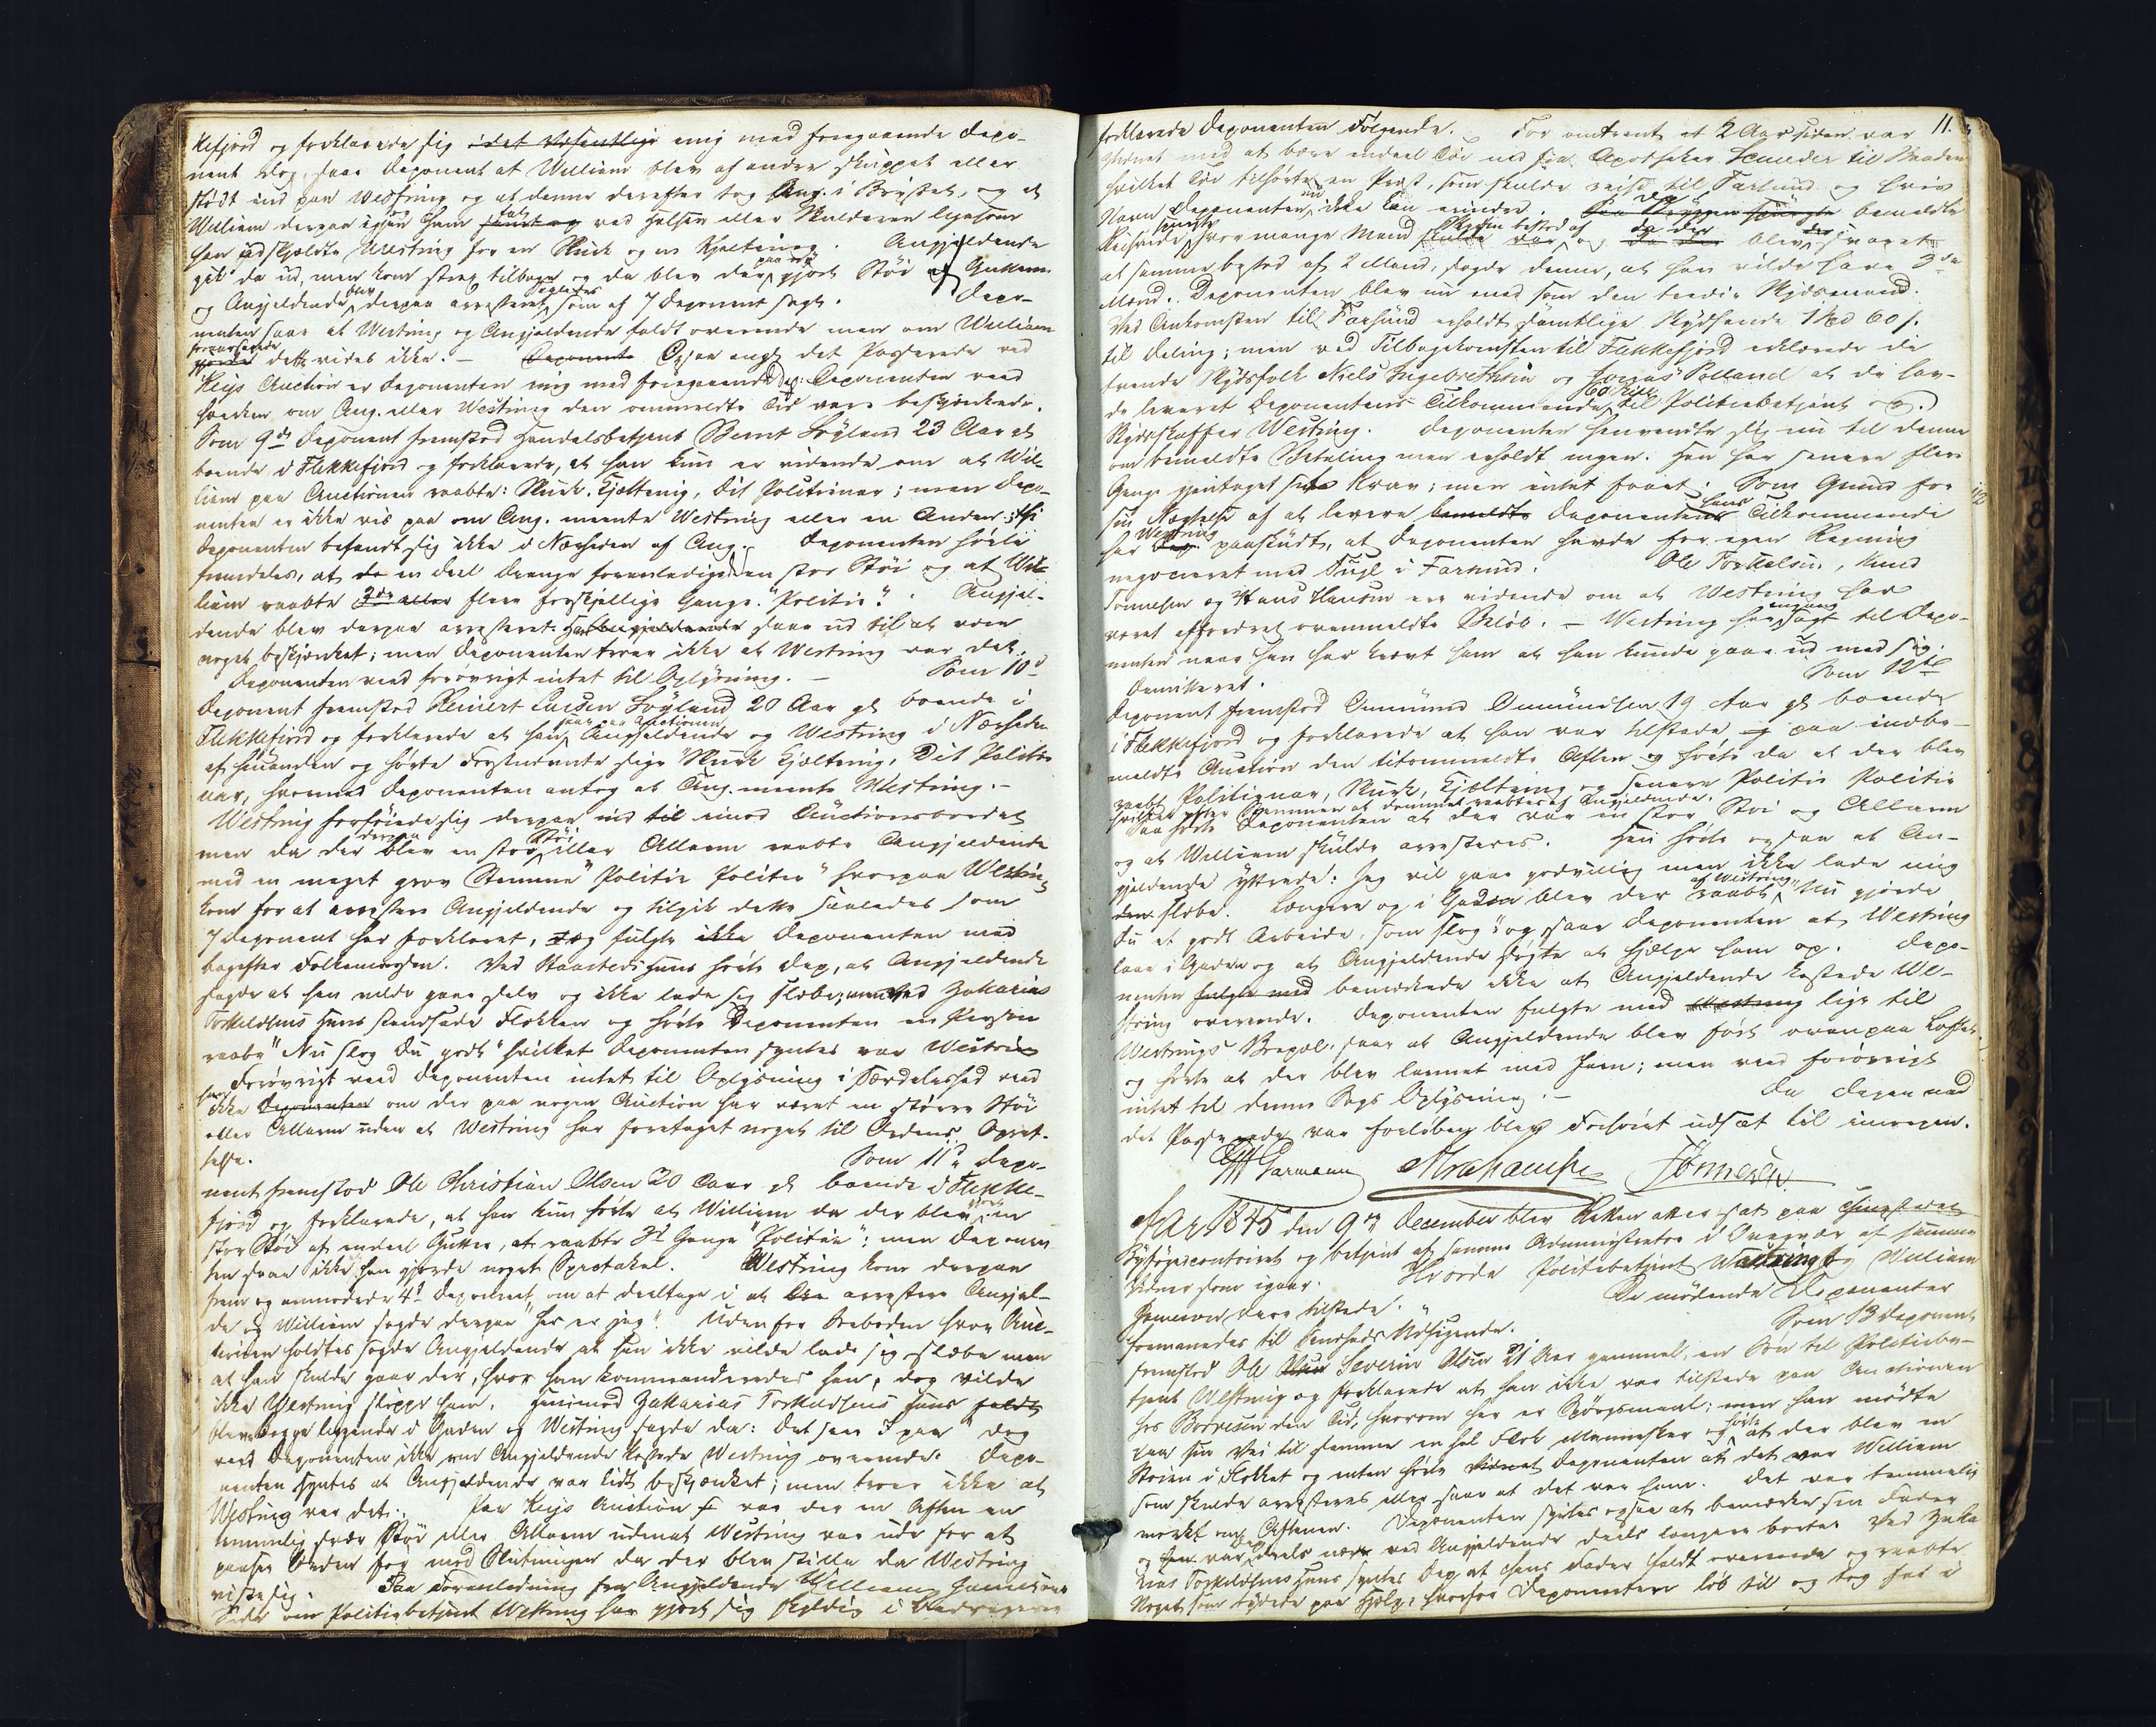 kefjord og forklarede sig i det Væsentlige enig med foregaaende Depo-
nent dog, saae Deponent at William blev af andre skuppet eller
stødt ind paa Westring og at denne derefter tog Ang. i Brystet, og at
William derpaa igjen ham fat ved Halsen eller Skulderen ligesom
han udskjældte Westring for en Slurk og en Kjæltring. Angjeldende
gik da ud, men kom strax tilbage og da blev der paa ny gjort Støi af Guttene
og Angjeldende blev derpaa arresteret saaledes som af 7 Deponent sagt. Depo-
nenten saae at Westring og Angjeldende faldt overende men om William
foraarsagede dette vides ikke. – Ogsaa angd det Passerede ved
Keys Auction er Deponenten enig med foregaaende Dep: Deponenten veed
hverken om Ang. eller Westring den ommeldte Tid vare beskjænkede.
Som 9de Deponent fremstod Handelsbetjent Bernt Løyland 23 Aar gl
boende i Flekkefjord og forklarede, at han kun er vidende om at Wil-
liam paa Auctionen raabte: Slurk, Kjæltring, Dit Politinar; men Depo-
nenten er ikke vis paa om Ang. meente Westring eller en Anden; thi
Deponenten befandt sig ikke i Nærheden af Ang. Deponenten hørte
fremdeles, at en Deel Drenge foranledigede en stor Støi og at Wil-
liam raabte 3de eller flere forskjellige Gange "Politie". Angjel-
dende blev derpaa arresteret. Han saae ud til at være
noget beskjænket; men Deponenten troer ikke at Westring var det.
Deponenten veed forøvrigt intet til Oplysning. – Som 10d
Deponent fremstod Reinert Larsen Løyland 20 Aar gl boende i
Flekkefjord og forklarede at han saae paa Auctionen Angjeldende og Westring i Nærheden
af hinanden og hørte Førstnævnte sige "Slurk Kjæltring, Dit Politi-
nar, hvormed Deponenten antog at Ang. meente Westring. –
Westring forføiede sig derpaa ind til imod Auctionsbordet
men da der derpaa blev en stor Støi eller Allarm raabte Angjeldende
med en meget grov Stemme "Politie Politie" hvorpaa Westring
kom for at arrestere Angjeldende og tilgik dette saaledes som
7 Deponent har forklaret, og fulgte Deponenten med
bagefter Folkemassen. Ved Haasteds Huus hørte Dep, at Angjeldende
sagde at han vilde gaae selv og ikke lade sig slæbe; men ved Zakarias
Torkildsens Huus standsede Flokken og hørte Deponenten en Person
raabe "Nu slog Du godt" hvilket Deponenten syntes var Westring
Forøvrigt veed Deponenten intet til Oplysning i Særdeleshed veed
han ikke om der paa nogen Auction har været en større Støi
eller Allarm uden at Westring har foretaget noget til Ordens Opret-
telse. Som 11de Depo-
nent fremstod Ole Christian Olsen 20 Aar gl boende i Flekke-
fjord og forklarede, at han kun hørte at William da der blev gjort en
stor Støi af endeel Gutter, at raabte Gange "Politie"; men Deponen
ten saae ikke han gjorde noget Spectakel. Westring kom derpaa
frem og anmodede 4d Deponent om at deeltage i at arrestere Angjel-
de og William sagde derpaa "her er jeg". Uden for Søeboden hvor Auc-
tionen holdtes sagde Angjeldende at han ikke vilde lade sig slæbe men
at han skulde gaae der, hvor han kommanderedes hen, dog vilde
ikke Westring slippe ham. Henimod Zakarias Torkildsens Huus
bleve begge liggende i Gaden og Westring sagde da: Det saae I paa dog
veed Deponenten ikke om Angjeldende kastede Westring overende. Depo-
nenten syntes at Angjeldende var lidt beskjænket; men troer ikke at
Westring var det. Paa Keys Auction var der en Aften en
temmelig svær Støi eller Allarm udenat Westring var ude for at
paasee Orden dog mod Slutningen da der blev stille da Westring
viste sig. Paa Foranledning fra Angjeldende William Jameson
om Politiebetjent Westring har gjort sig skyldig i Bedragerie
11.
forklarede Deponenten Følgende. For omtrent et 2 Aar siden var
med at bære endeel Tøi ned fra Apotheker Scunder til Baaden
hvilket Tøi tilhørte en Præst, som skulde reise til Farsund og hvis
Navn Deponenten nu ikke kan erindre. Da bemeldte
Reisende spurgte hvor mange Mand Skydsen bestod af og da der blev ham svaret
at samme bestod af 2 Mand, sagde denne, at han vilde have 3de
Mand. Deponenten blev nu med som den tredie Skydsmand.
Ved Ankomsten til Farsund erholdt samtlige Skydsende 1 Spd 60 s.
til Deling; men ved Tilbagekomsten til Flekkefjord erklærede de
tvende Skydsfolk Niels Ingebrethsen og Jonas Polland at de hav-
de leveret Deponentens Tilkommende 60 Skill til Politiebetjent og
Skydsskaffer Westring. Deponenten henvendte sig nu til denne
om bemeldte Betaling men erholdt ingen. Han har senere flere
Gange gjentaget sit Krav; men intet faaet. Som Grund for
sin Nægtelse af at levere Deponenten hans Tilkommende
har Westring paaskudt, at Deponenten havde for egen Regning
negocieret med Fugl i Farsund. Ole Torkelsen, Knud
Tønnesen og Hans Hansen ere vidende om at Westring har
været affordret ovenmeldte Beløb. – Westring har engang sagt til Depo-
nenten naar han har krævt ham at han kunde gaae ud med sig.
Demitteret. Som 12te
Deponent fremstod Ommund Ommundsen 19 Aar gl boende
i Flekkefjord og forklarede at han var tilstede paa indbe-
meldte Auction den ditommeldte Aften og hørte da at der blev
raabt Politiguar, Slurk, Kjæltring og senere Politie Politie
hvilket efter Stemmen at dømme raabtes af Angjeldende.
Saa hørte Deponenten at der var en stor Støi og Allarm
og at William skulde arresteres. Han hørte ogsaa at An-
gjeldende yttrede: Jeg vil gaae godvillig men ikke lade mig
slæbe. Længere op i Gaden blev der raabt af Westring "Nu gjorde
Du et godt Arbeide, som slog" og saae Deponenten at Westring
laae i Gaden og at Angjeldende søgte at hjælpe ham op. Depo-
nenten bemærkede ikke at Angjeldende kastede We-
string overende. Deponenten fulgte med lige til
Westrings Bopæl, saae at Angjeldende blev ført ovenpaa Loftet
og hørte at der blev larmet med Jern; men veed forøvrigt
intet til denne Sags Oplysning. – Da Dagen med
det Passerede var forløben blev Forhøret udsat til imorgen.
Garmann Abrahamsen Tønnesen
Aar 1845 den 9de December blev Retten atter sat paa Thingstedet
Byfogdcontoiret og betjent af samme Administrator i Overvær af samme
Vidner som igaar. Hvorda Politiebetjent Westring og William
Jameson vare tilstede. De mødende Deponenter
formanedes til Sandheds Udsigende. Som 13 Deponent
fremstod Ole Severin Olsen 21 Aar gammel, en Søn til Politiebe-
tjent Westring og forklarede at han ikke var tilstede paa Auctionen
hos Børresen den Tid, hvorom her er Spørgsmaal; men han mødte
paa sin Vei til samme en hel Flok Mennesker og hørte at der blev en
Støien i Flokket og enten hørte Deponenten at det var William
som skulde arresteres eller saae at det var ham. Det var temmelig
mørkt om Aftenen. Deponenten syntes ogsaa at bemærke sin Fader
og var Dep deels nær ved Angjeldende deels længere borte. Ved Zaka
rias Torkildsens Huus syntes Dep at hans Fader faldt overende og raabte
Noget som tydede paa Hjelp, hvorfor Deponenten løb til og tog fat i